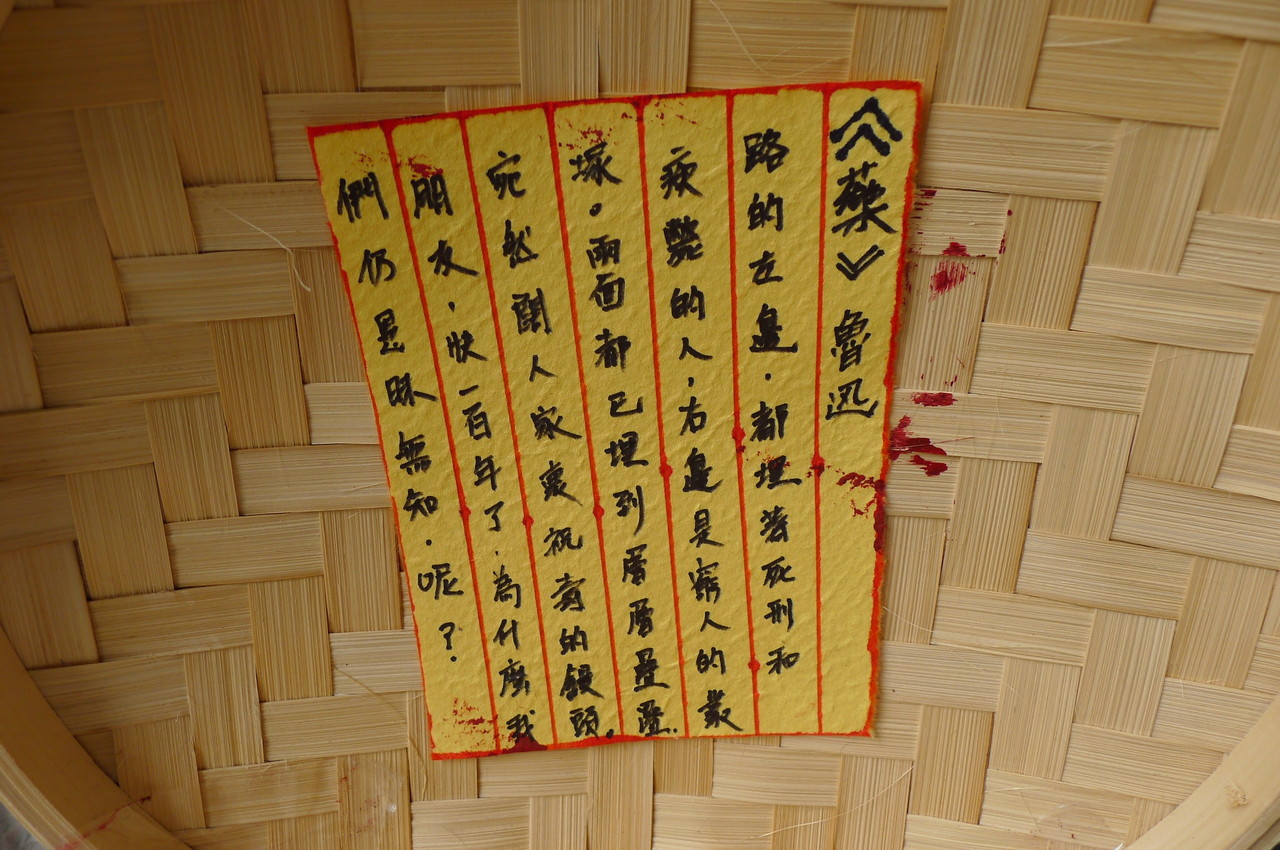 《藥》魯迅
路的左邊．都埋著死刑和
瘐斃的人，右邊是窮人的叢
塚。兩面都已埋到層層疊疊．
宛然闊人家裏祝壽的饅頭。
朋友，快一百年了．為什麼我
們仍是昧無知．呢？